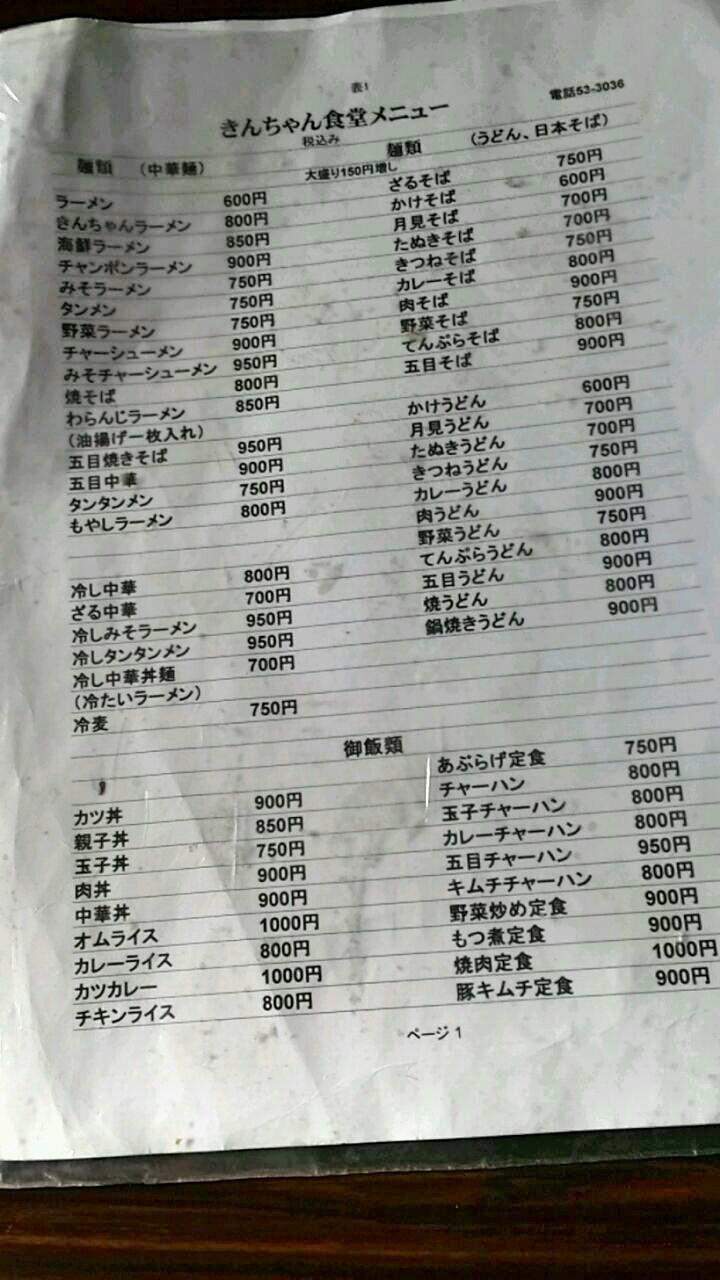 表1
電話53-3036
きんちゃん食堂メニュー
税込み
麺類 （中華麺）
大盛り150円増し
ラーメン 600円
きんちゃんラーメン 800円
海鮮ラーメン 850円
チャンポンラーメン 900円
みそラーメン 750円
タンメン 750円
野菜ラーメン 750円
チャーシューメン 900円
みそチャーシューメン 950円
焼そば 800円
わらんじラーメン 850円
（油揚げ一枚入れ）
五目焼きそば 950円
五目中華 900円
タンタンメン 750円
もやしラーメン 800円
冷し中華 800円
ざる中華 700円
冷しみそラーメン 950円
冷しタンタンメン 950円
冷し中華丼麺 700円
（冷たいラーメン）
冷麦 750円
麺類 （うどん、日本そば）
ざるそば 750円
かけそば 600円
月見そば 700円
たぬきそば 700円
きつねそば 750円
カレーそば 800円
肉そば 900円
野菜そば 750円
てんぷらそば 800円
五目そば 900円
かけうどん 600円
月見うどん 700円
たぬきうどん 700円
きつねうどん 750円
カレーうどん 800円
肉うどん 900円
野菜うどん 750円
てんぷらうどん 800円
五目うどん 900円
焼うどん 800円
鍋焼きうどん 900円
御飯類
カツ丼 900円
親子丼 850円
玉子丼 750円
肉丼 900円
中華丼 900円
オムライス 1000円
カレーライス 800円
カツカレー 1000円
チキンライス 800円
あぶらげ定食 750円
チャーハン 800円
玉子チャーハン 800円
カレーチャーハン 800円
五目チャーハン 950円
キムチチャーハン 800円
野菜炒め定食 900円
もつ煮定食 900円
焼肉定食 1000円
豚キムチ定食 900円
ページ 1